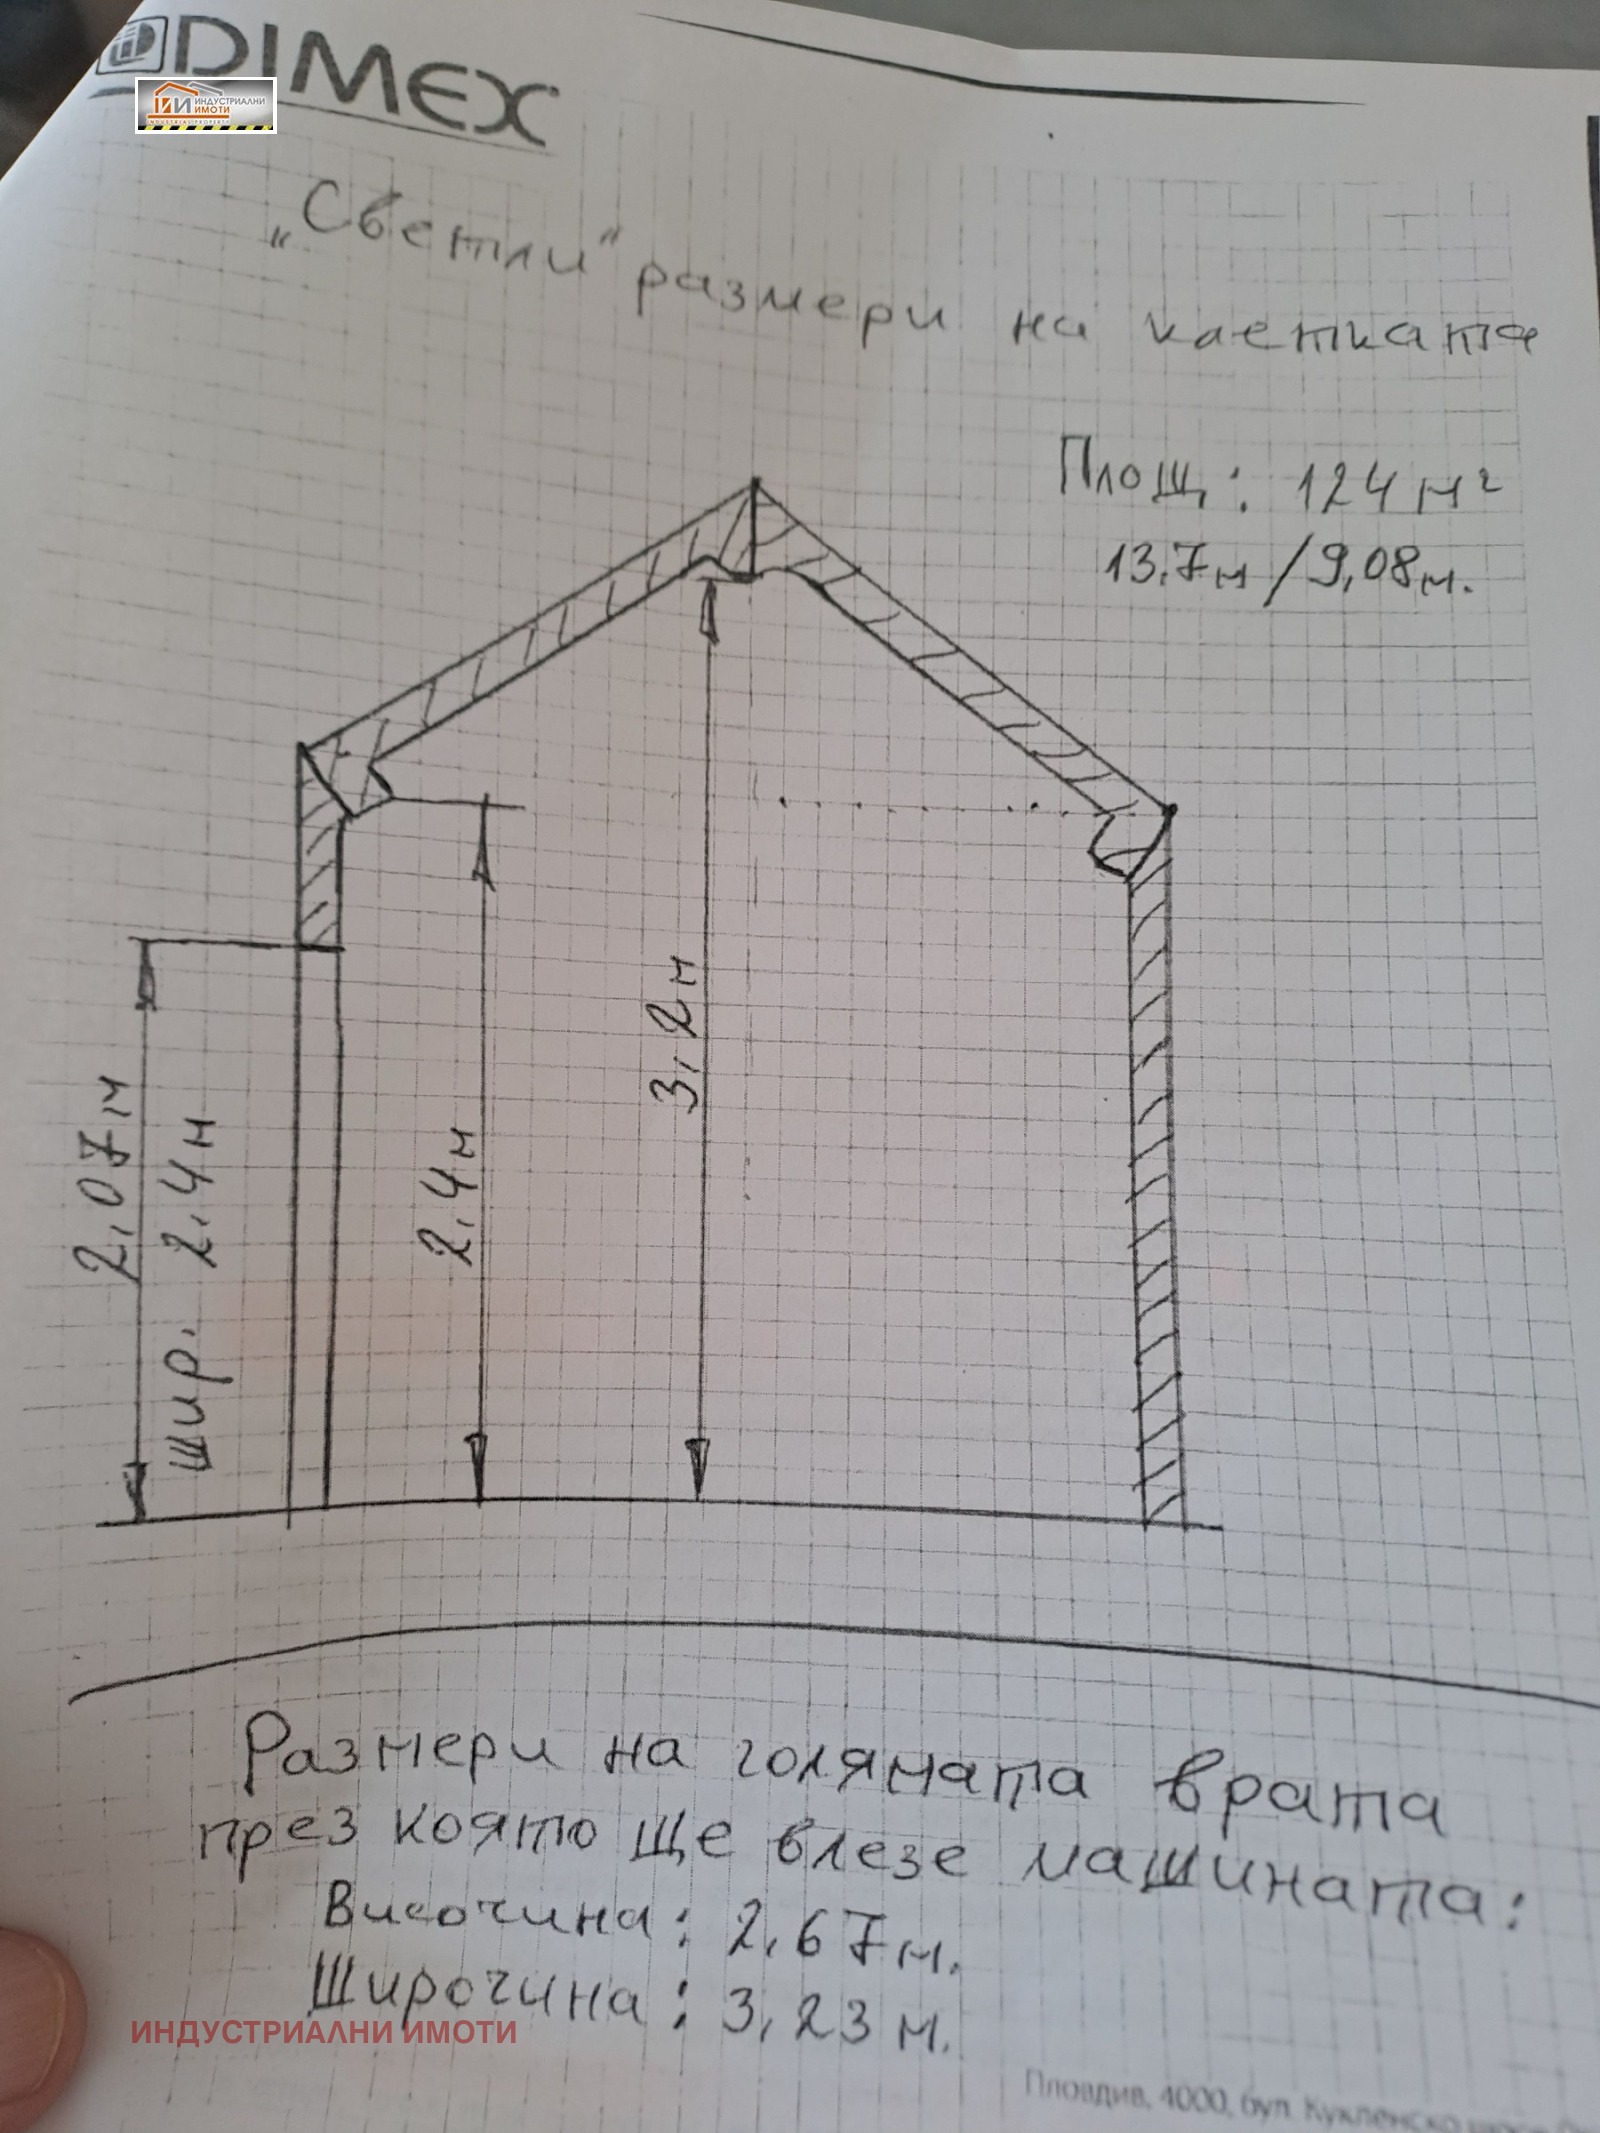 DIMEX
ИНДУСТРИАЛНИ
ИМОТИ
INDUSTRIAL PROPERTY
„Светли“ размери на клетката
Площ: 124 м²
13,7м / 9,08м.
2,07м
шир. 2,4м
2,4м
3,2м
Размери на голямата врата
през която ще влезе машината:
Височина: 2,67м.
Широчина: 3,23 м.
ИНДУСТРИАЛНИ ИМОТИ
Пловдив, 4000, бул. Кукленско